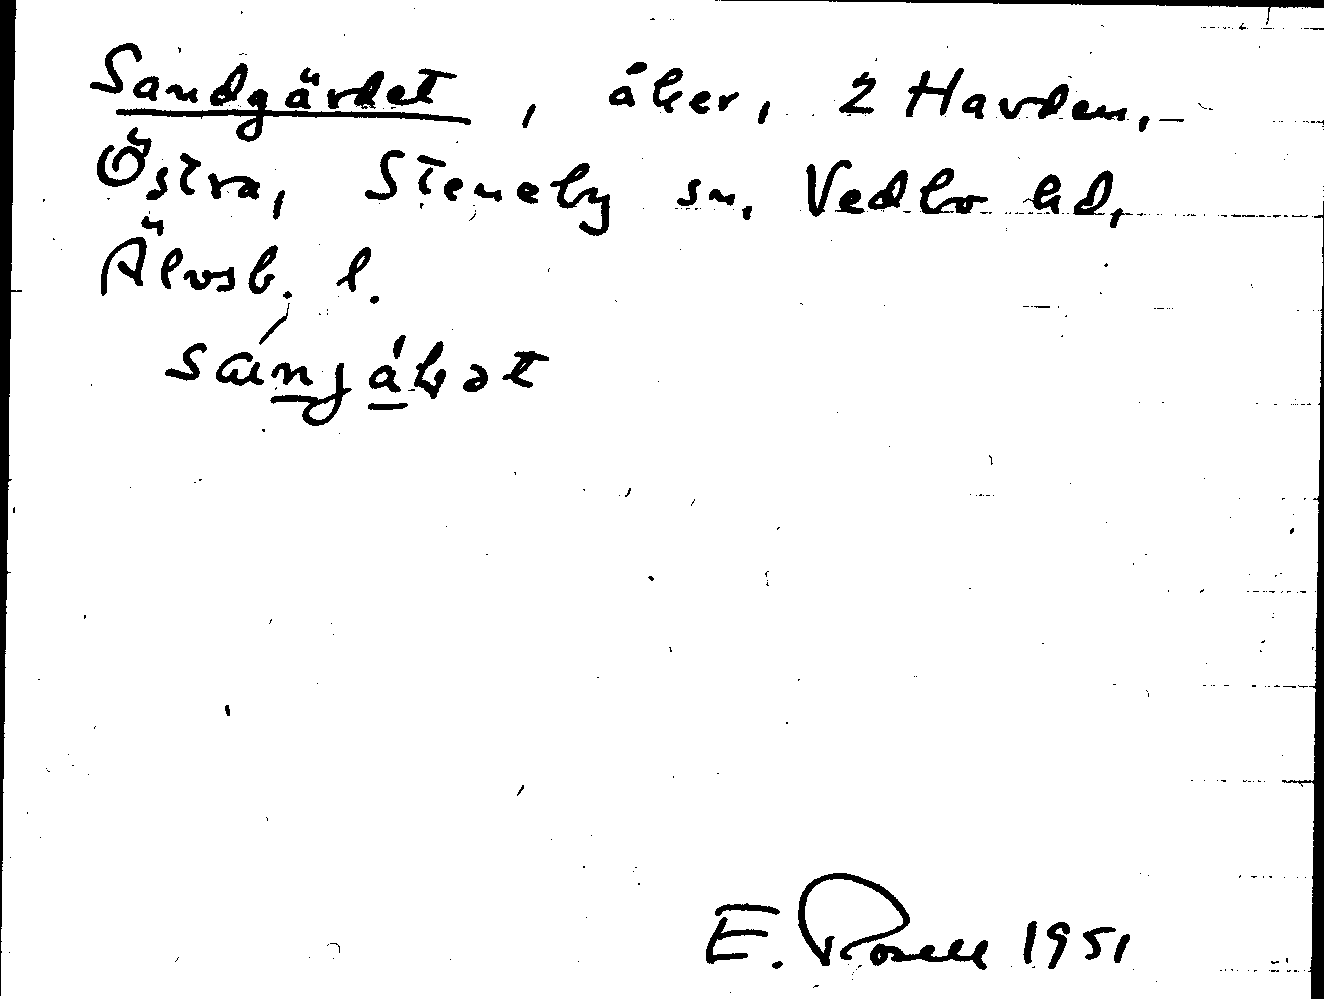 Sandgärdet, åker, 2 Havden,
Östra, Steneby sn, Vedbo hd,
Älvsb. l.
E. Rosell 1951